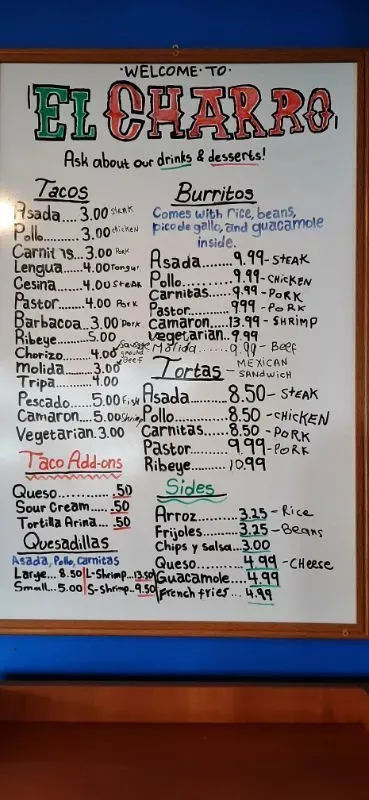 ·WELCOME·TO·
EL CHARRO
Ask about our drinks & desserts!
Tacos
Asada....3.00 steak
Pollo.......3.00 chicken
Carnitas...3.00 Pork
Lengua....4.00 Tongue
Cesina.....4.00 Steak
Pastor.....4.00 Pork
Barbacoa..3.00 Pork
Ribeye......5.00
Chorizo.....4.00 Sausage
Molida......3.00 ground Beef
Tripa........4.00
Pescado.....5.00 Fish
Camaron....5.00 Shrimp
Vegetarian.3.00
Taco Add-ons
Queso............. .50
Sour Cream..... .50
Tortilla Arina.... .50
Quesadillas
Asada, Pollo, Carnitas
Large... 8.50 L-Shrimp...13.50
Small...5.00 S-Shrimp..9.50
Burritos
Comes with rice, beans,
pico de gallo, and guacamole
inside.
Asada.......9.99-STEAK
Pollo.........9.99-CHICKEN
Carnitas....9.99-PORK
Pastor.......9.99-PORK
Camaron....13.99-SHRIMP
Vegetarian..9.99
Molida.......9.99-Beef
Tortas - MEXICAN SANDWICH
Asada.......8.50-STEAK
Pollo.........8.50-CHICKEN
Carnitas....8.50-PORK
Pastor.......9.99-PORK
Ribeye.......10.99
Sides
Arroz.........3.25-Rice
Frijoles......3.25-Beans
Chips y salsa...3.00
Queso.........4.99-CHeese
Guacamole...4.99
French fries...4.99